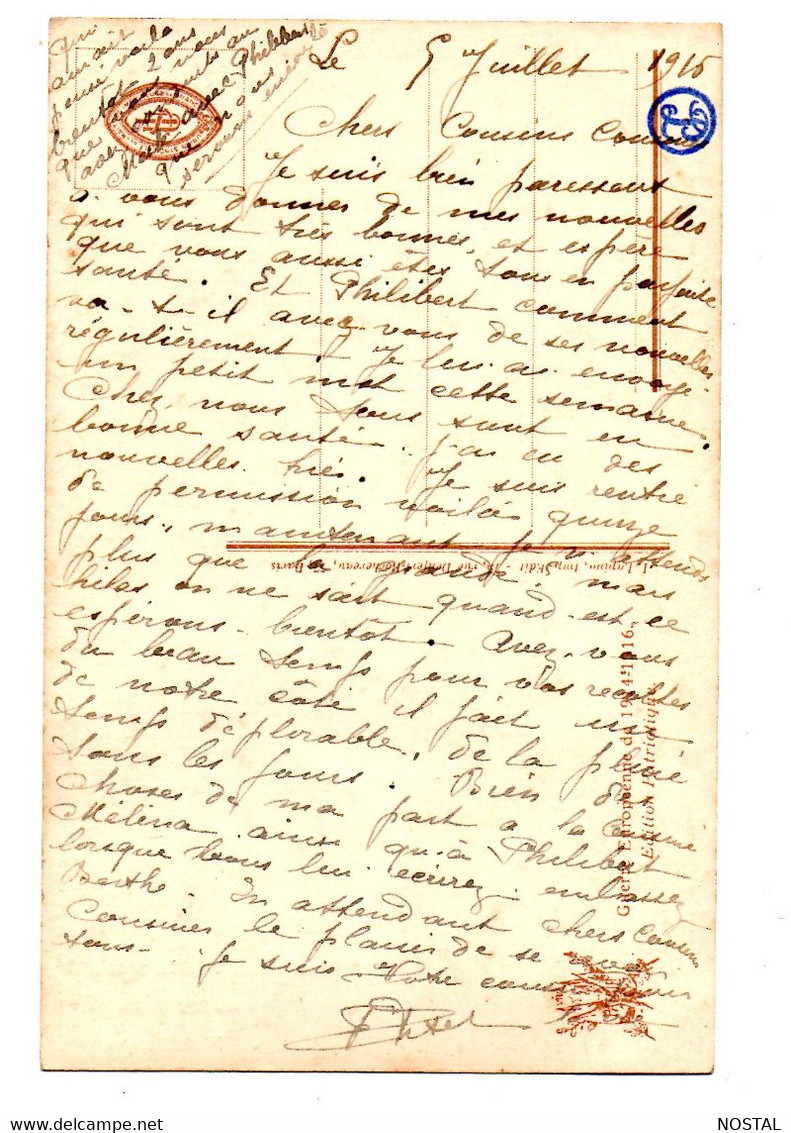 Le 5 Juillet 1916
Chers Cousins Cousine
Je suis bien paresseux
à vous donner de mes nouvelles
qui sont très bonnes, et espère
que vous aussi êtes tous en parfaite
santé. Et Philibert comment
va-t-il avez-vous de ses nouvelles
régulièrement. Je lui ai envoyé
un petit mot cette semaine.
Chez nous tous sont en
bonne santé j'ai eu des
nouvelles hier. Je suis rentré
de permission voilà quinze
jours, maintenant je n'attends
plus que la grande, mais
hélas on ne sait quand est-ce
espérons bientôt. Avez-vous
du beau temps pour vos récoltes
de notre côté il fait un
temps déplorable, de la pluie
tous les jours. Bien des
choses de ma part à la cousine
Mélina ainsi qu'à Philibert
lorsque vous lui écrirez. embrassez
Berthe. En attendant chers Cousins
Cousines le plaisir de se revoir
tous. Je suis Votre cousin
Qui
aurait
pensé voilà
bientôt 2 ans
que nous nous
avec Philibert
que nous
serions encore
J. Lapina, Imp. Édit - 75, rue Denfert-Rochereau, Paris
Guerre Européenne de 1914-1916.
Edition Patriotique.
NOSTAL